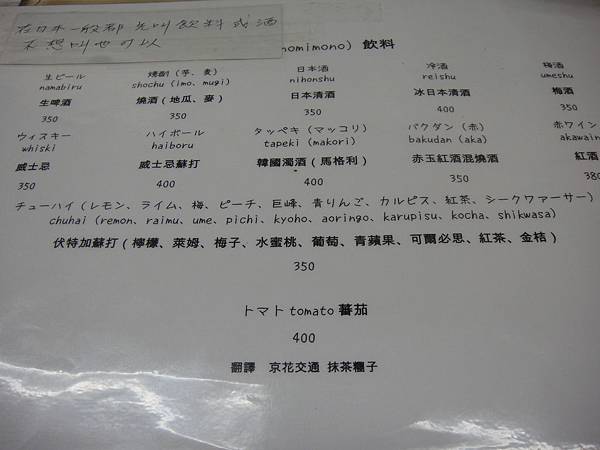 在日本一般都先叫飲料或酒
不想叫也可以
nomimono) 飲料
生ビール 焼酎（芋、麦） 日本酒 冷酒 梅酒
namabiru shochu (imo、mugi) nihonshu reishu umeshu
生啤酒 燒酒（地瓜、麥） 日本清酒 冰日本清酒 梅酒
350 350 350 400 350
ウィスキー ハイボール タッペキ（マッコリ） バクダン（赤） 赤ワイン
whiski haiboru tapeki (makori) bakudan (aka) akawain
威士忌 威士忌蘇打 韓國濁酒（馬格利） 赤玉紅酒混燒酒 紅酒
350 400 400 350 380
チューハイ（レモン、ライム、梅、ピーチ、巨峰、青りんご、カルピス、紅茶、シークワァーサー）
chuhai (remon、raimu、ume、pichi、kyoho、aoringo、karupisu、kocha、shikwasa)
伏特加蘇打（檸檬、萊姆、梅子、水蜜桃、葡萄、青蘋果、可爾必思、紅茶、金桔）
350
トマト tomato 蕃茄
400
翻譯 京花交通 抹茶糰子